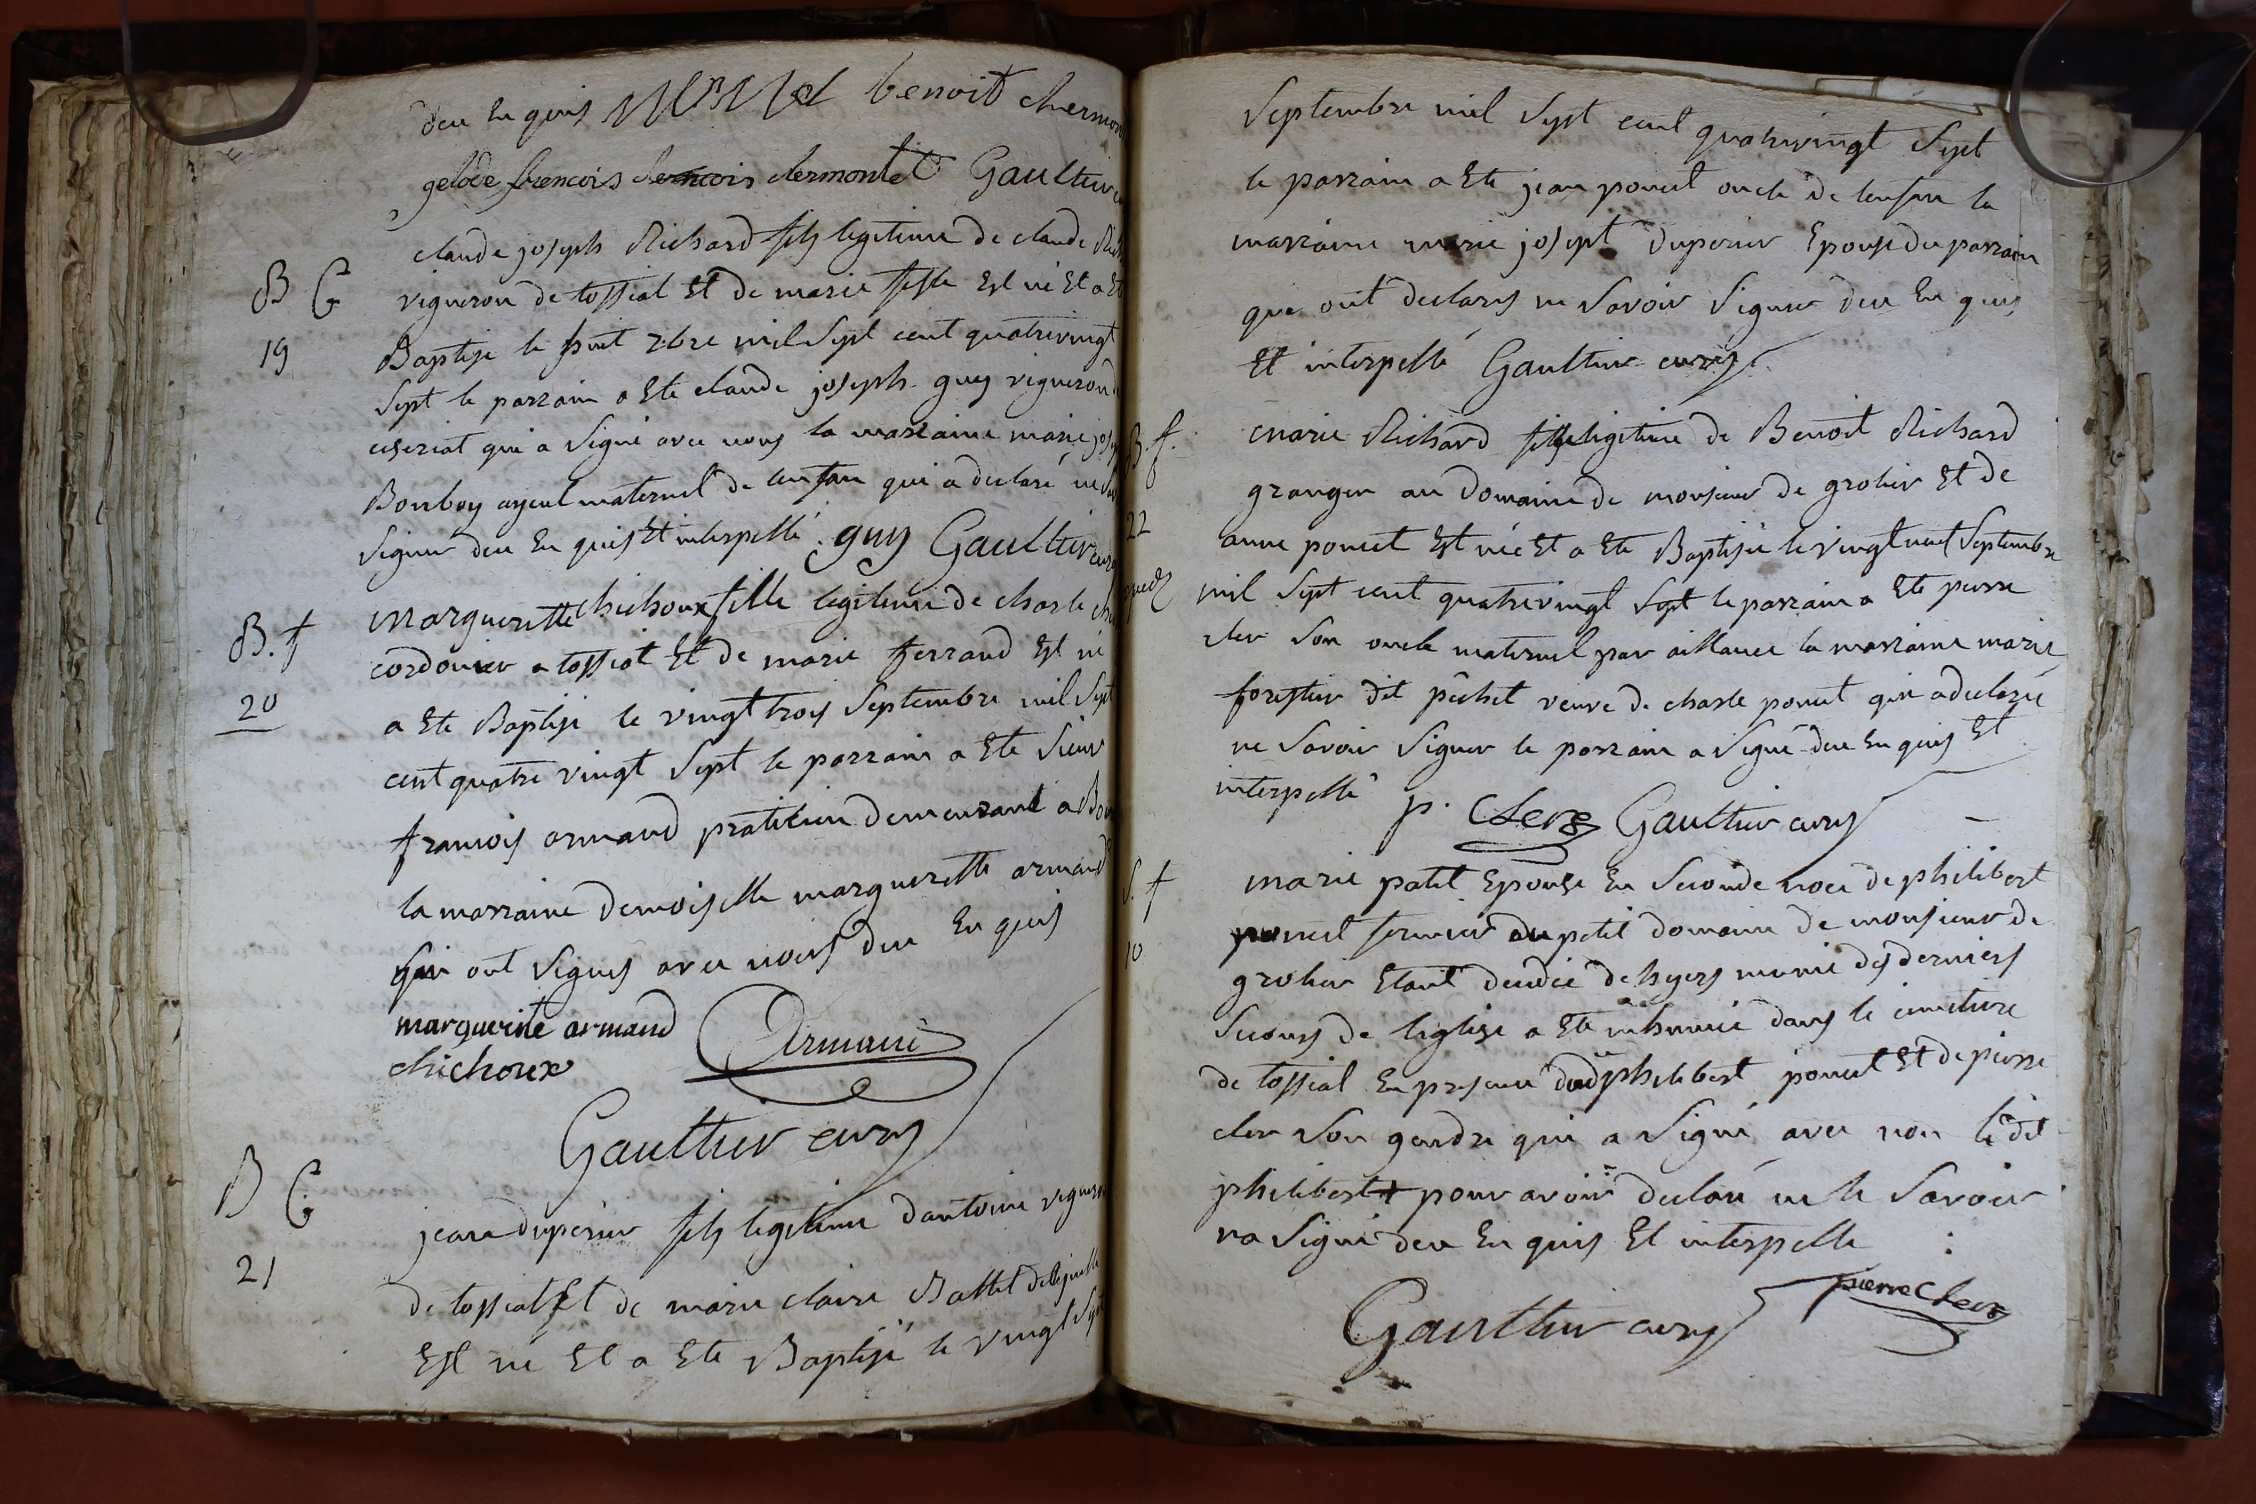 deu Enquis benoit chermon
gelode francois clermontet Gaultier
claude joseph Richard fils legitime de claude
B G
vigneron de tossiat Et de marie fille Est né Et a Eté
19
Baptisé le huit 7bre mil Sept cent quatrevingt
Sept le parrain a Ete claude joseph guy vigneron
ceseriat qui a Signé avec nous la marraine marie
Bonboy ayeul maternel de lenfan qui a declaré ne
Signer deu Enquis Et interpellé guy Gaultier curé
Marguerette chichoux fille legitime de charle
B. f
cordonier a tossiat Et de marie ferrand Est né
20
a Ete Baptisé le vingt trois Septembre mil Sept
cent quatre vingt Sept le parrain a Ete Sieur
francois armand praticien demeurant a
la marraine demoiselle marguerette armand
qui ont Signés avec nous deu Enquis
marguerite armand Armand
chichoux
Gaultier curé
B G
jean duperier fils legitime dantoine vigneron
21
de tossiat Et de marie claire Battet
Est né Et a Ete Baptisé le vingt
Septembre mil Sept cent quatrevingt Sept
le parrain a Ete jean poncet oncle de lenfan la
marraine marie josept duperier Epouse du parrain
qui ont declarés ne Savoir Signer deu Enquis
Et interpellé Gaultier curé
B. f.
marie Richard fille legitime de Benoit Richard
granger au domaine de monsieur de grolier Et de
22
anne poncet Est née Et a Ete Baptisée le vingt neuf Septembre
mil Sept cent quatrevingt Sept le parrain a Ete pierre
cler Son oncle maternel par aillance la marraine marie
forestier dit pechet veuve de charle poncet qui a declaré
ne Savoir Signer le parrain a Signé deu Enquis Et
interpellé p. Clerc Gaultier curé
S. f
marie patet Epouse En Seconde noce de philibert
poncet fermier du petit domaine de monsieur de
10
grolier Etant decédée de hyers munie des derniers
Secours de leglise a Ete inhumée dans le cimetiere
de tossiat En presence dudit philibert poncet Et de pierre
cler Son gendre qui a Signé avec nou le dit
philibert pour avoir declaré ne le Savoir
na Signé deu Enquis Et interpelle
pierre Clerc
Gaultier curé